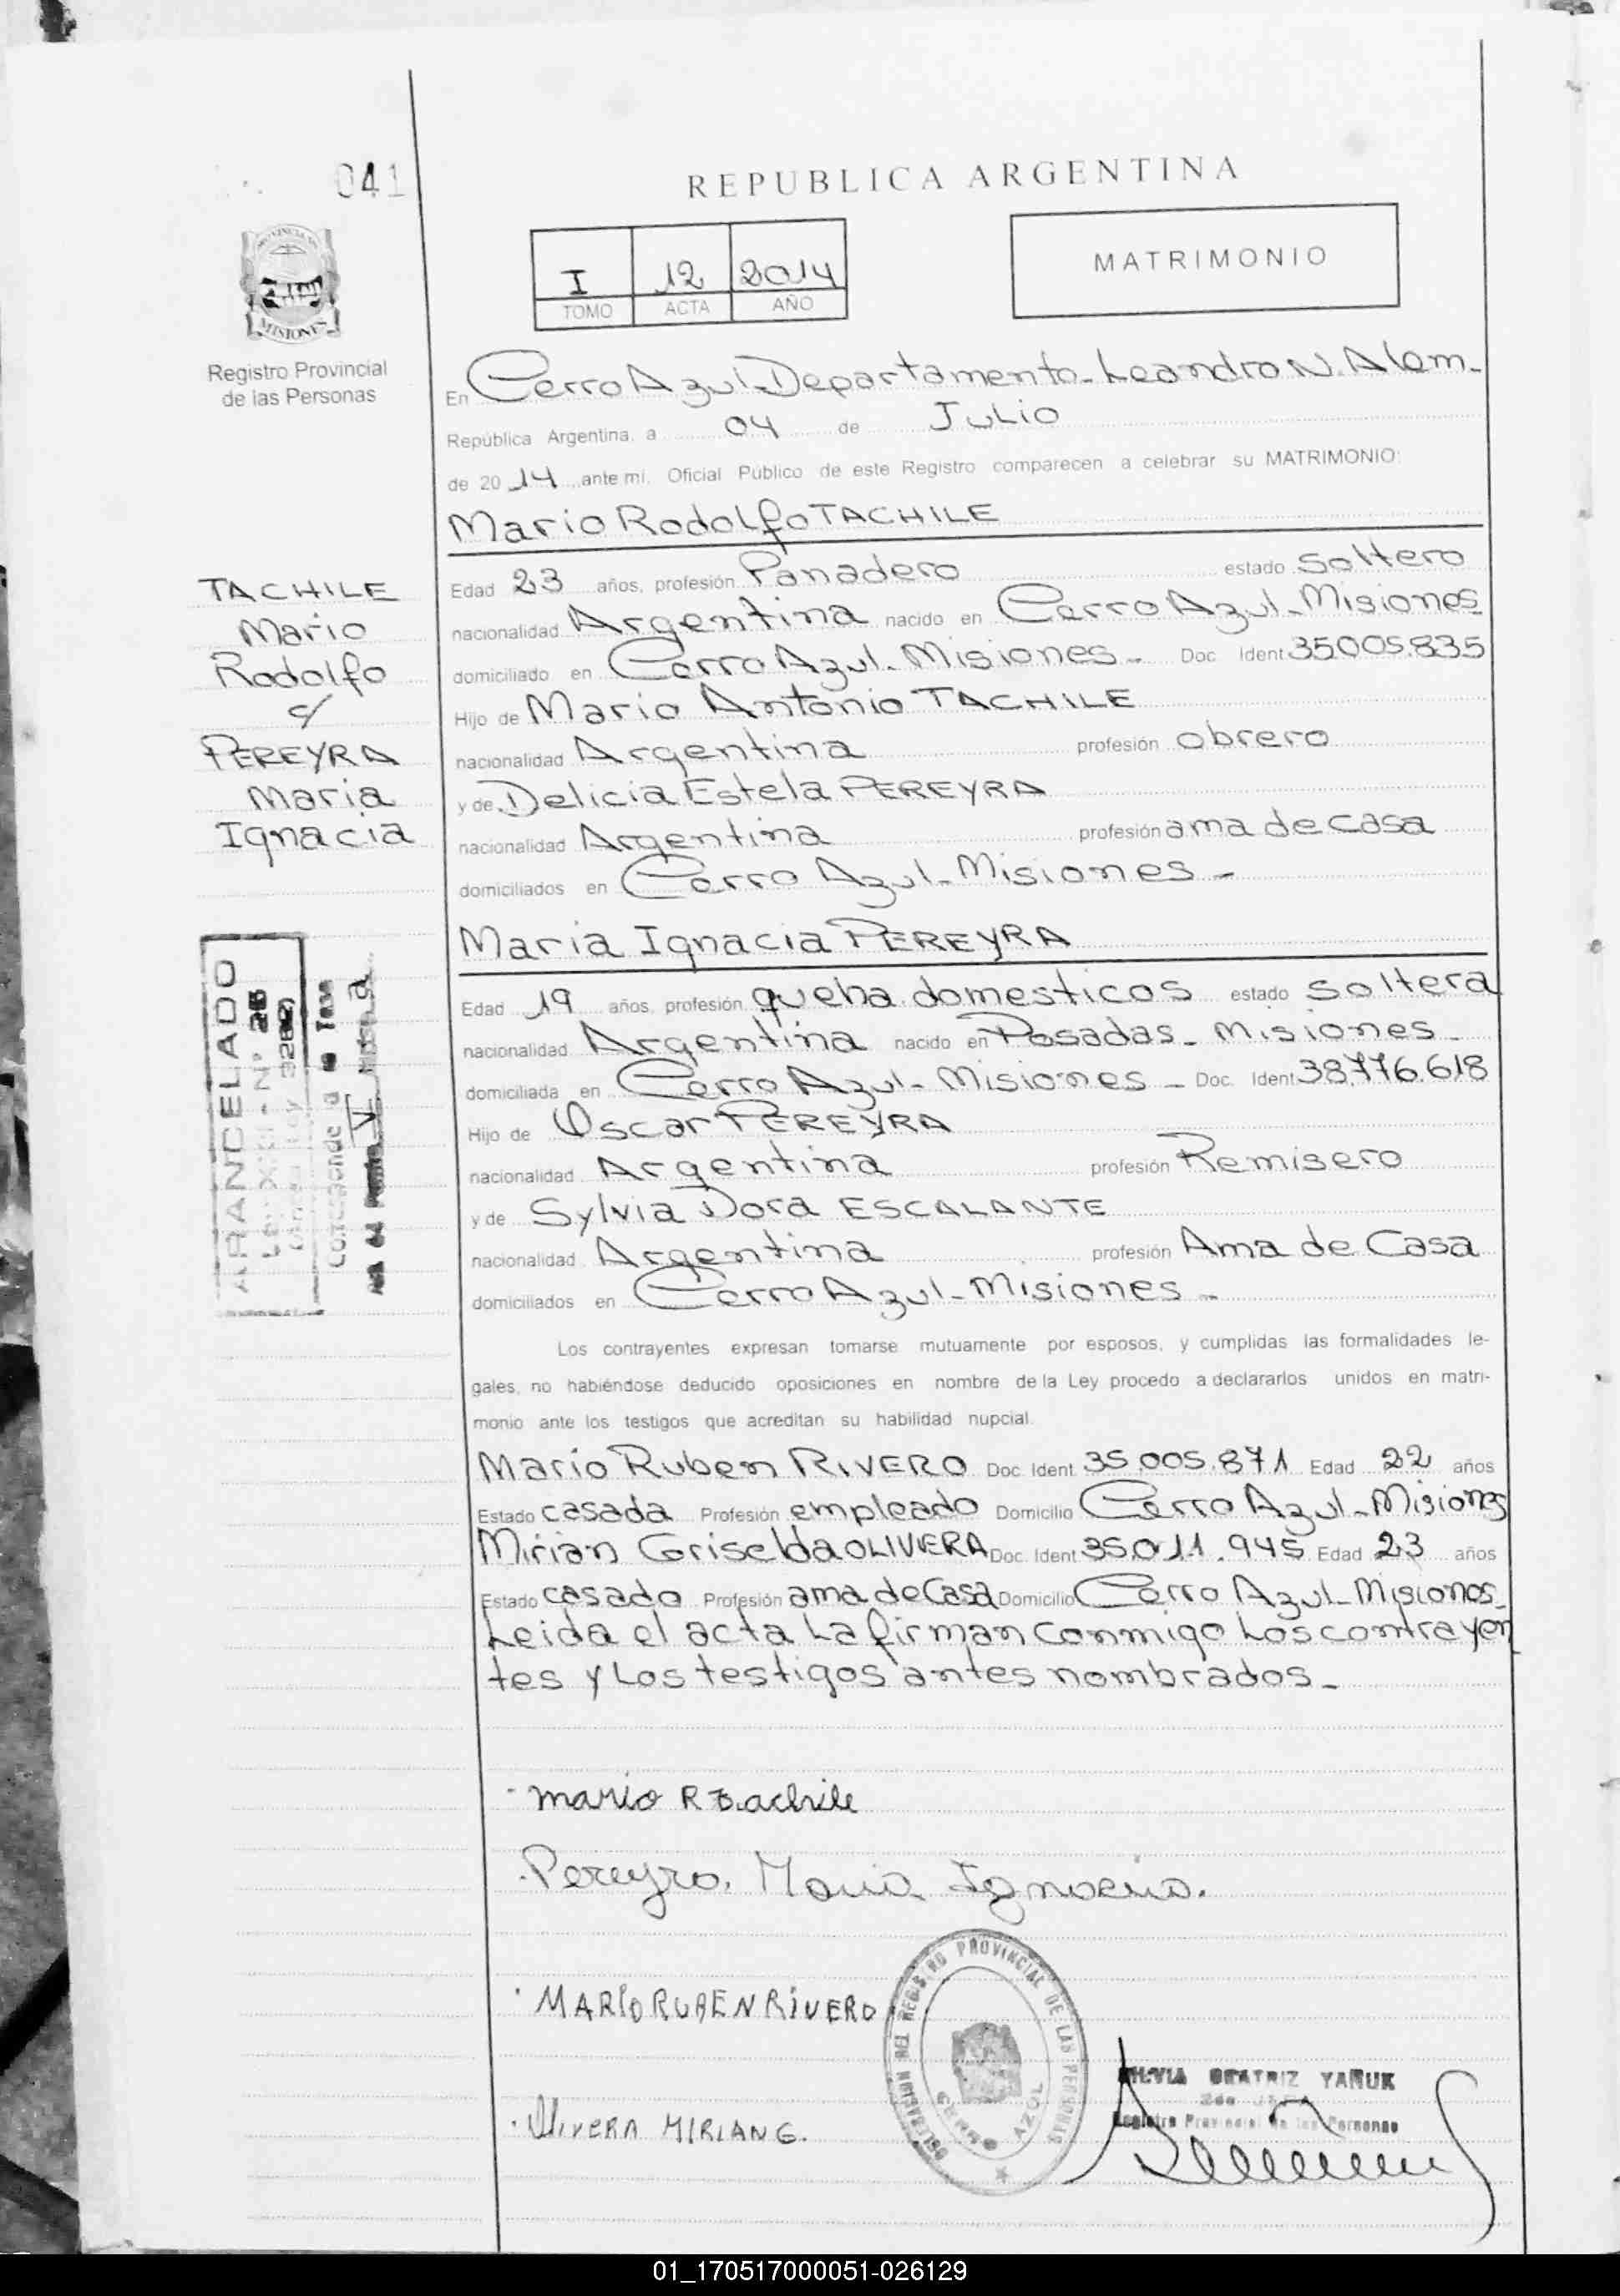 041
REPUBLICA ARGENTINA
I 12 2014
TOMO ACTA AÑO
MATRIMONIO
MISIONES
Registro Provincial
de las Personas
En Cerro Azul-Departamento-Leandro N. Alem-
República Argentina, a 04 de Julio
de 20 14 ante mí, Oficial Público de este Registro comparecen a celebrar su MATRIMONIO:
Mario Rodolfo TACHILE
Edad 23 años, profesión Panadero estado Soltero
nacionalidad Argentina nacido en Cerro Azul-Misiones
domiciliado en Cerro Azul-Misiones- Doc Ident 35.005.835
Hijo de Mario Antonio TACHILE
nacionalidad Argentina profesión obrero
y de Delicia Estela PEREYRA
nacionalidad Argentina profesión ama de casa
domiciliados en Cerro Azul-Misiones-
TACHILE
Mario
Rodolfo
c/
PEREYRA
Maria
Ignacia
Maria Ignacia PEREYRA
Edad 19 años, profesión queha domesticos estado soltera
nacionalidad Argentina nacido en Posadas-Misiones-
domiciliada en Cerro Azul-Misiones- Doc. Ident 38.776.618
Hijo de Oscar PEREYRA
nacionalidad Argentina profesión Remisero
y de Sylvia Dora ESCALANTE
nacionalidad Argentina profesión Ama de Casa
domiciliados en Cerro Azul-Misiones-
ARANCELADO
Los contrayentes expresan tomarse mutuamente por esposos, y cumplidas las formalidades le-
gales, no habiéndose deducido oposiciones en nombre de la Ley procedo a declararlos unidos en matri-
monio ante los testigos que acreditan su habilidad nupcial.
Mario Ruben RIVERO Doc. Ident. 35.005.871 Edad 22 años
Estado casada Profesión empleado Domicilio Cerro Azul-Misiones
Mirian Griselda OLIVERA Doc. Ident 35.011.945 Edad 23 años
Estado casado Profesión ama de Casa Domicilio Cerro Azul-Misiones-
Leida el acta La firman conmigo Los contrayen
tes y Los testigos antes nombrados-
mario R Tachile
Pereyra, Maria Ignacia.
MARIO RUBEN RIVERO
OLIVERA MIRIAN G.
DELEGACION DEL REGISTRO PROVINCIAL DE LAS PERSONAS
CERRO AZUL
SILVIA BEATRIZ YAÑUK
Registro Provincial de las Personas
01_170517000051-026129